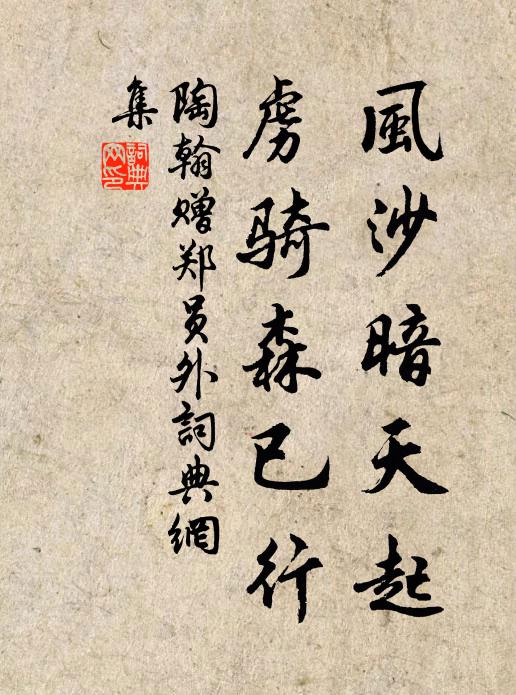 風沙暗天起
虜騎森已行
陶翰赠郑员外詞典網
集
詞典
网印